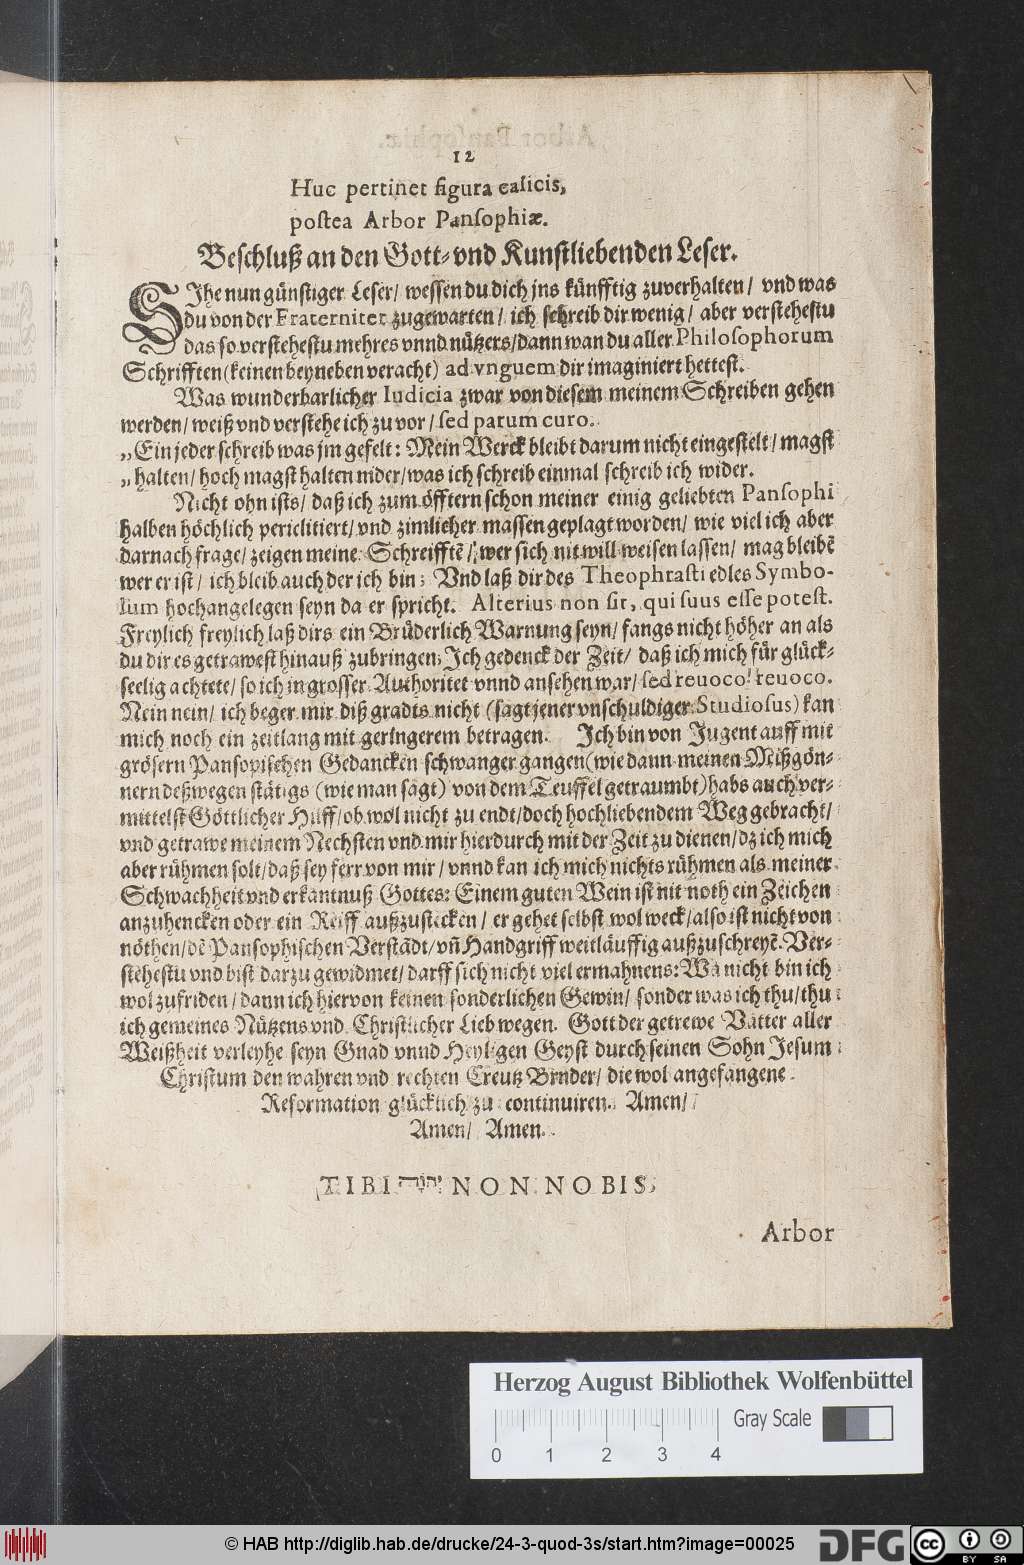 12
Huc pertinet figura ealicis,
postea Arbor Pansophiæ.
Beschluß an den Gott- vnd Kunstliebenden Leser.
SIhe nun günstiger Leser/ wessen du dich jns künfftig zuverhalten/ vnd was
du von der Fraternitet zugewarten/ ich schreib dir wenig/ aber verstehestu
das so verstehestu mehres vnnd nützers/dann wan du aller Philosophorum
Schrifften (keinen beyneben veracht) ad vnguem dir imaginiert hettest.
Was wunderbarlicher Iudicia zwar von diesem meinem Schreiben gehen
werden/ weiß vnd verstehe ich zu vor/ sed parum curo.
„Ein jeder schreib was jm gefelt: Mein Werck bleibt darum nicht eingestelt/ magst
„halten/ hoch magst halten nider/was ich schreib einmal schreib ich wider.
Nicht ohn ists/ daß ich zum öfftern schon meiner einig geliebten Pansophi
halben höchlich periclitiert/ vnd zimlicher massen geplagt worden/ wie viel ich aber
darnach frage/ zeigen meine Schreifftē/ wer sich nit will weisen lassen/ mag bleibē
wer er ist/ ich bleib auch der ich bin; Vnd laß dir des Theophrasti edles Symbo-
lum hochangelegen seyn da er spricht. Alterius non sit, qui suus esse potest.
Freylich freylich laß dirs ein Brüderlich Warnung seyn/ fangs nicht höher an als
du dir es getrawest hinauß zubringen; Ich gedenck der Zeit/ daß ich mich für glück-
seelig achtete/ so ich in grosser Authoritet vnnd ansehen war/ sed reuoco! reuoco.
Nein nein/ ich beger mir diß gradts nicht (sagt jener vnschuldiger Studiosus) kan
mich noch ein zeitlang mit geringerem betragen. Ich bin von Jugent auff mit
grösern Pansopischen Gedancken schwanger gangen (wie dann meinen Mißgön-
nern deßwegen stätigs (wie man sagt) von dem Teuffel getraumbt) habs auch ver-
mittelst Göttlicher Hülff/ ob wol nicht zu endt/ doch hochliebendem Weg gebracht/
vnd getrawe meinem Nechsten vnd mir hierdurch mit der Zeit zu dienen/ dz ich mich
aber rühmen solt/ daß sey ferr von mir/ vnnd kan ich mich nichts rühmen als meiner
Schwachheit vnd erkantnuß Gottes: Einem guten Wein ist nit noth ein Zeichen
anzuhencken oder ein Reiff außzustecken/ er gehet selbst wol weck/ also ist nicht von
nöthen/ dē Pansophischen Verstādt/ vñ Handgriff weitläuffig außzuschreyē. Ver-
stehestu vnd bist darzu gewidmet/ darff sich nicht viel ermahnens: Wa nicht bin ich
wol zufriden/ dann ich hiervon keinen sonderlichen Gewin/ sonder was ich thu/ thu
ich gemeines Nützens vnd Christlicher Lieb wegen. Gott der getrewe Vatter aller
Weißheit verleyhe seyn Gnad vnnd Heyligen Geyst durch seinen Sohn Jesum
Christum den wahren vnd rechten Creutz Brnder/ die wol angefangene
Reformation glücklich zu continuiren. Amen/
Amen/ Amen.
TIBI יהוה NON NOBIS.
Arbor
Herzog August Bibliothek Wolfenbüttel
Gray Scale
0 1 2 3 4
© HAB http://diglib.hab.de/drucke/24-3-quod-3s/start.htm?image=00025
DFG
cc BY SA